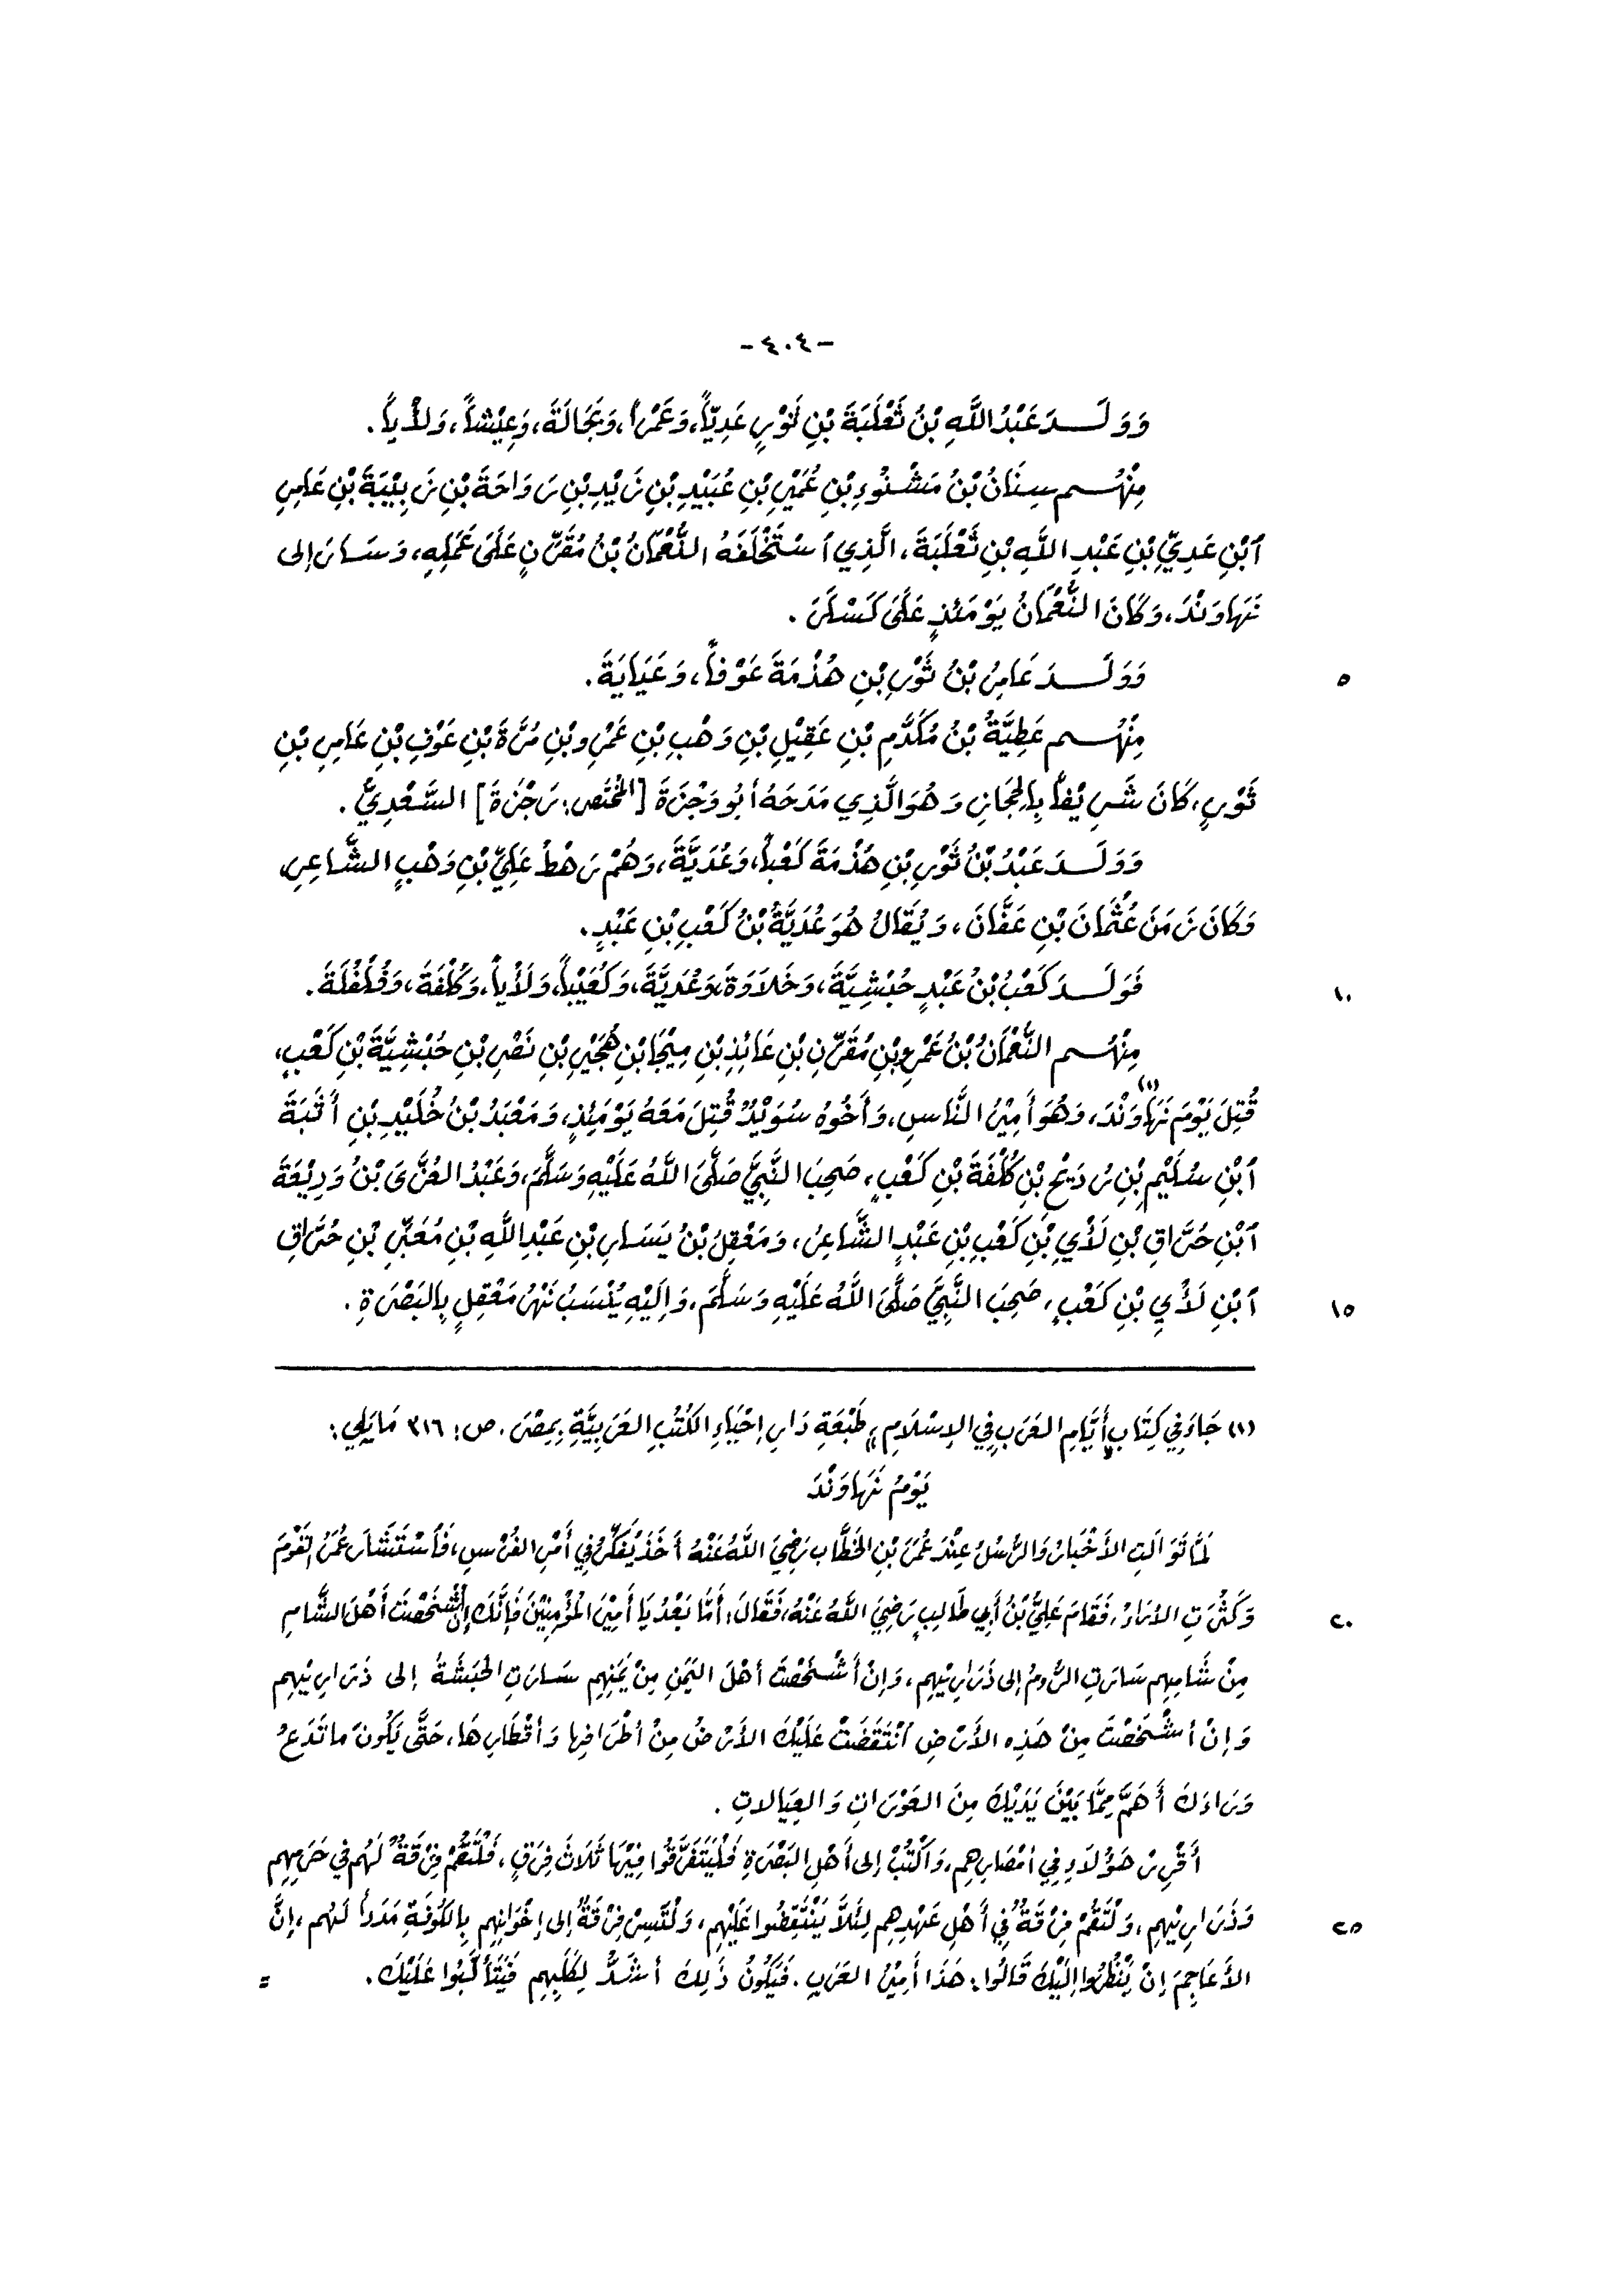 -٤٠٤-
وَوَلَــدَ عَبْدُ اللَّهِ بْنُ ثَعْلَبَةَ بْنِ ثَوْرٍ عَدِيّاً، وَعَمْراً، وَبَجَالَةَ، وَعِيْشاً، وَلَأْياً.
مِنْهُــم سِنَانُ بْنُ مَشْنُوءِ بْنِ عُمَيْرِ بْنِ عُبَيْدِ بْنِ زَيْدِ بْنِ رَوَاحَةَ بْنِ زَبِيْبَةَ بْنِ عَامِرِ
ٱبْنِ عَدِيِّ بْنِ عَبْدِ اللَّهِ بْنِ ثَعْلَبَةَ، الَّذِي ٱسْتَخْلَفَهُ النُّعْمَانُ بْنُ مُقَرِّنٍ عَلَى عَمَلِهِ، وَسَارَ إلى
نَهَاوَنْدَ، وَكَانَ النُّعْمَانُ يَوْمَئِذٍ عَلَى كَسْكَرَ.
وَوَلَــدَ عَامِرُ بْنُ ثَوْرِ بْنِ هُذْمَةَ عَوْفاً، وَعَيَايَةَ. ٥
مِنْهُــم عَطِيَّةُ بْنُ مُكَدَّمِ بْنِ عَقِيْلِ بْنِ وَهْبِ بْنِ عَمْرِو بْنِ مُرَّةَ بْنِ عَوْفِ بْنِ عَامِرِ بْنِ
ثَوْرٍ، كَانَ شَرِيْفاً بِالحِجَازِ وَهُوَ الَّذِي مَدَحَهُ أبُو وَجْزَةَ [المُخْتَصر: رَجْزَة] السَّعْدِيُّ.
وَوَلَــدَ عَبْدُ بْنُ ثَوْرِ بْنِ هُذْمَةَ كَعْباً، وَعُدَيَّةَ، وَهُمْ رَهْطُ عَلِيِّ بْنِ وَهْبٍ الشَّاعِرِ،
وَكَانَ زَمَنَ عُثْمَانَ بْنِ عَفَّانَ، وَيُقَالُ هُوَ عُدَيَّةُ بْنُ كَعْبِ بْنِ عَبْدٍ.
فَوَلَــدَ كَعْبُ بْنُ عَبْدٍ حُبْشِيَّةَ، وَخَلَاوَةَ، وَعُدَيَّةَ، وَكُعَيْباً، وَلَأْياً، وَكُلْفَةَ، وَفُلْفُلَةَ. ١٠
مِنْهُــم النُّعْمَانُ بْنُ عَمْرِو بْنِ مُقَرِّنِ بْنِ عَائِذِ بْنِ مِيْجَا بْنِ هُجَيْرِ بْنِ نَصْرِ بْنِ حُبْشِيَّةَ بْنِ كَعْبٍ،
قُتِلَ يَوْمَ نَهَاوَنْدَ(١)، وَهُوَ أمِيْرُ النَّاسِ، وَأخُوهُ سُوَيْدٌ قُتِلَ مَعَهُ يَوْمَئِذٍ، وَمَعْبَدُ بْنُ خُلَيْدِ بْنِ أُثْبَةَ
ٱبْنِ سُلَيْمِ بْنِ رُدَيْحِ بْنِ كُلْفَةَ بْنِ كَعْبٍ، صَحِبَ النَّبِيَّ صَلَّى اللَّهُ عَلَيْهِ وَسَلَّمَ، وَعَبْدُ العُزَّى بْنُ وَدِيْعَةَ
ٱبْنِ حُرَّاقِ بْنِ لَأْيِ بْنِ كَعْبِ بْنِ عَبْدٍ الشَّاعِرُ، وَمَعْقِلُ بْنُ يَسَارِ بْنِ عَبْدِ اللَّهِ بْنِ مُعَبِّرِ بْنِ حُرَّاقِ
ٱبْنِ لَأْيِ بْنِ كَعْبٍ، صَحِبَ النَّبِيَّ صَلَّى اللَّهُ عَلَيْهِ وَسَلَّمَ، وَإلَيْهِ يُنْسَبُ نَهْرُ مَعْقِلٍ بِالبَصْرَةِ. ١٥
(١) جَاءَ فِي كِتَابِ «أيَّامِ العَرَبِ فِي الإسْلَامِ» طَبْعَةِ دَارِ إحْيَاءِ الكُتُبِ العَرَبِيَّةِ بِمِصْرَ. ص: ٣١٦ مَايَلِي:
يَوْمُ نَهَاوَنْدَ
لَمَّا تَوَالَتِ الأخْبَارُ وَالرُّسُلُ عِنْدَ عُمَرَ بْنِ الخَطَّابِ رَضِيَ اللَّهُ عَنْهُ أخَذَ يُفَكِّرُ فِي أمْرِ الفُرْسِ، فَٱسْتَشَارَ عُمَرُ القَوْمَ
وَكَثُرَتِ الآرَاءُ، فَقَامَ عَلِيُّ بْنُ أبِي طَالِبٍ رَضِيَ اللَّهُ عَنْهُ، فَقَالَ: أمَّا بَعْدُ يَا أمِيْرَ المُؤْمِنِيْنَ فَإنَّكَ إنْ أشْخَصْتَ أهْلَ الشَّامِ ٢٠
مِنْ شَامِهِم سَارَتِ الرُّومُ إلى ذَرَارِيْهِم، وَإنْ أشْخَصْتَ أهْلَ اليَمَنِ مِنْ يَمَنِهِم سَارَتِ الحَبَشَةُ إلى ذَرَارِيْهِم
وَإنْ أشْخَصْتَ مِنْ هَذِهِ الأرْضِ ٱنْتَقَضَتْ عَلَيْكَ الأرْضُ مِنْ أطْرَافِهَا وَأقْطَارِهَا، حَتَّى يَكُونَ مَا تَدَعُ
وَرَاءَكَ أهَمَّ مِمَّا بَيْنَ يَدَيْكَ مِنَ العَوْرَاتِ وَالعِيَالاتِ.
أقْرِرْ هَؤُلَاءِ فِي أمْصَارِهِم، وَٱكْتُبْ إلى أهْلِ البَصْرَةِ فَلْيَتَفَرَّقُوا فِيْهَا ثَلَاثَ فِرَقٍ، فَلْتَقُمْ فِرْقَةٌ لَهُم فِي حَرَمِهِم
وَذَرَارِيْهِم، وَلْتَقُمْ فِرْقَةٌ فِي أهْلِ عَهْدِهِم لِئَلَّا يَنْتَقِضُوا عَلَيْهِم، وَلْتَسِرْ فِرْقَةٌ إلى إخْوَانِهِم بِالكُوفَةِ مَدَداً لَهُم، إنَّ ٢٥
الأعَاجِمَ إنْ يَنْظُرُوا إلَيْكَ قَالُوا: هَذَا أمِيْرُ العَرَبِ. فَيَكُونُ ذَلِكَ أشَدَّ لِكَلَبِهِم فَيَتَألَّبُوا عَلَيْكَ. =